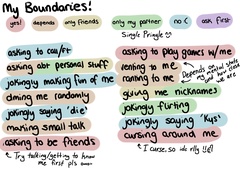 My Boundaries!
yes! depends only friends only my partner no :( ask first
Single Pringle
asking to call/ft
asking abt personal stuff
jokingly making fun of me
dming me randomly
jokingly saying 'die'
making small talk
asking to be friends
Try talking/getting to know me first pls
asking to play games w/me
venting to me
ranting to me
Depends on my mental state and how close we are
giving me nicknames
jokingly flirting
jokingly saying 'kys'
cursing around me
I curse, so its rlly